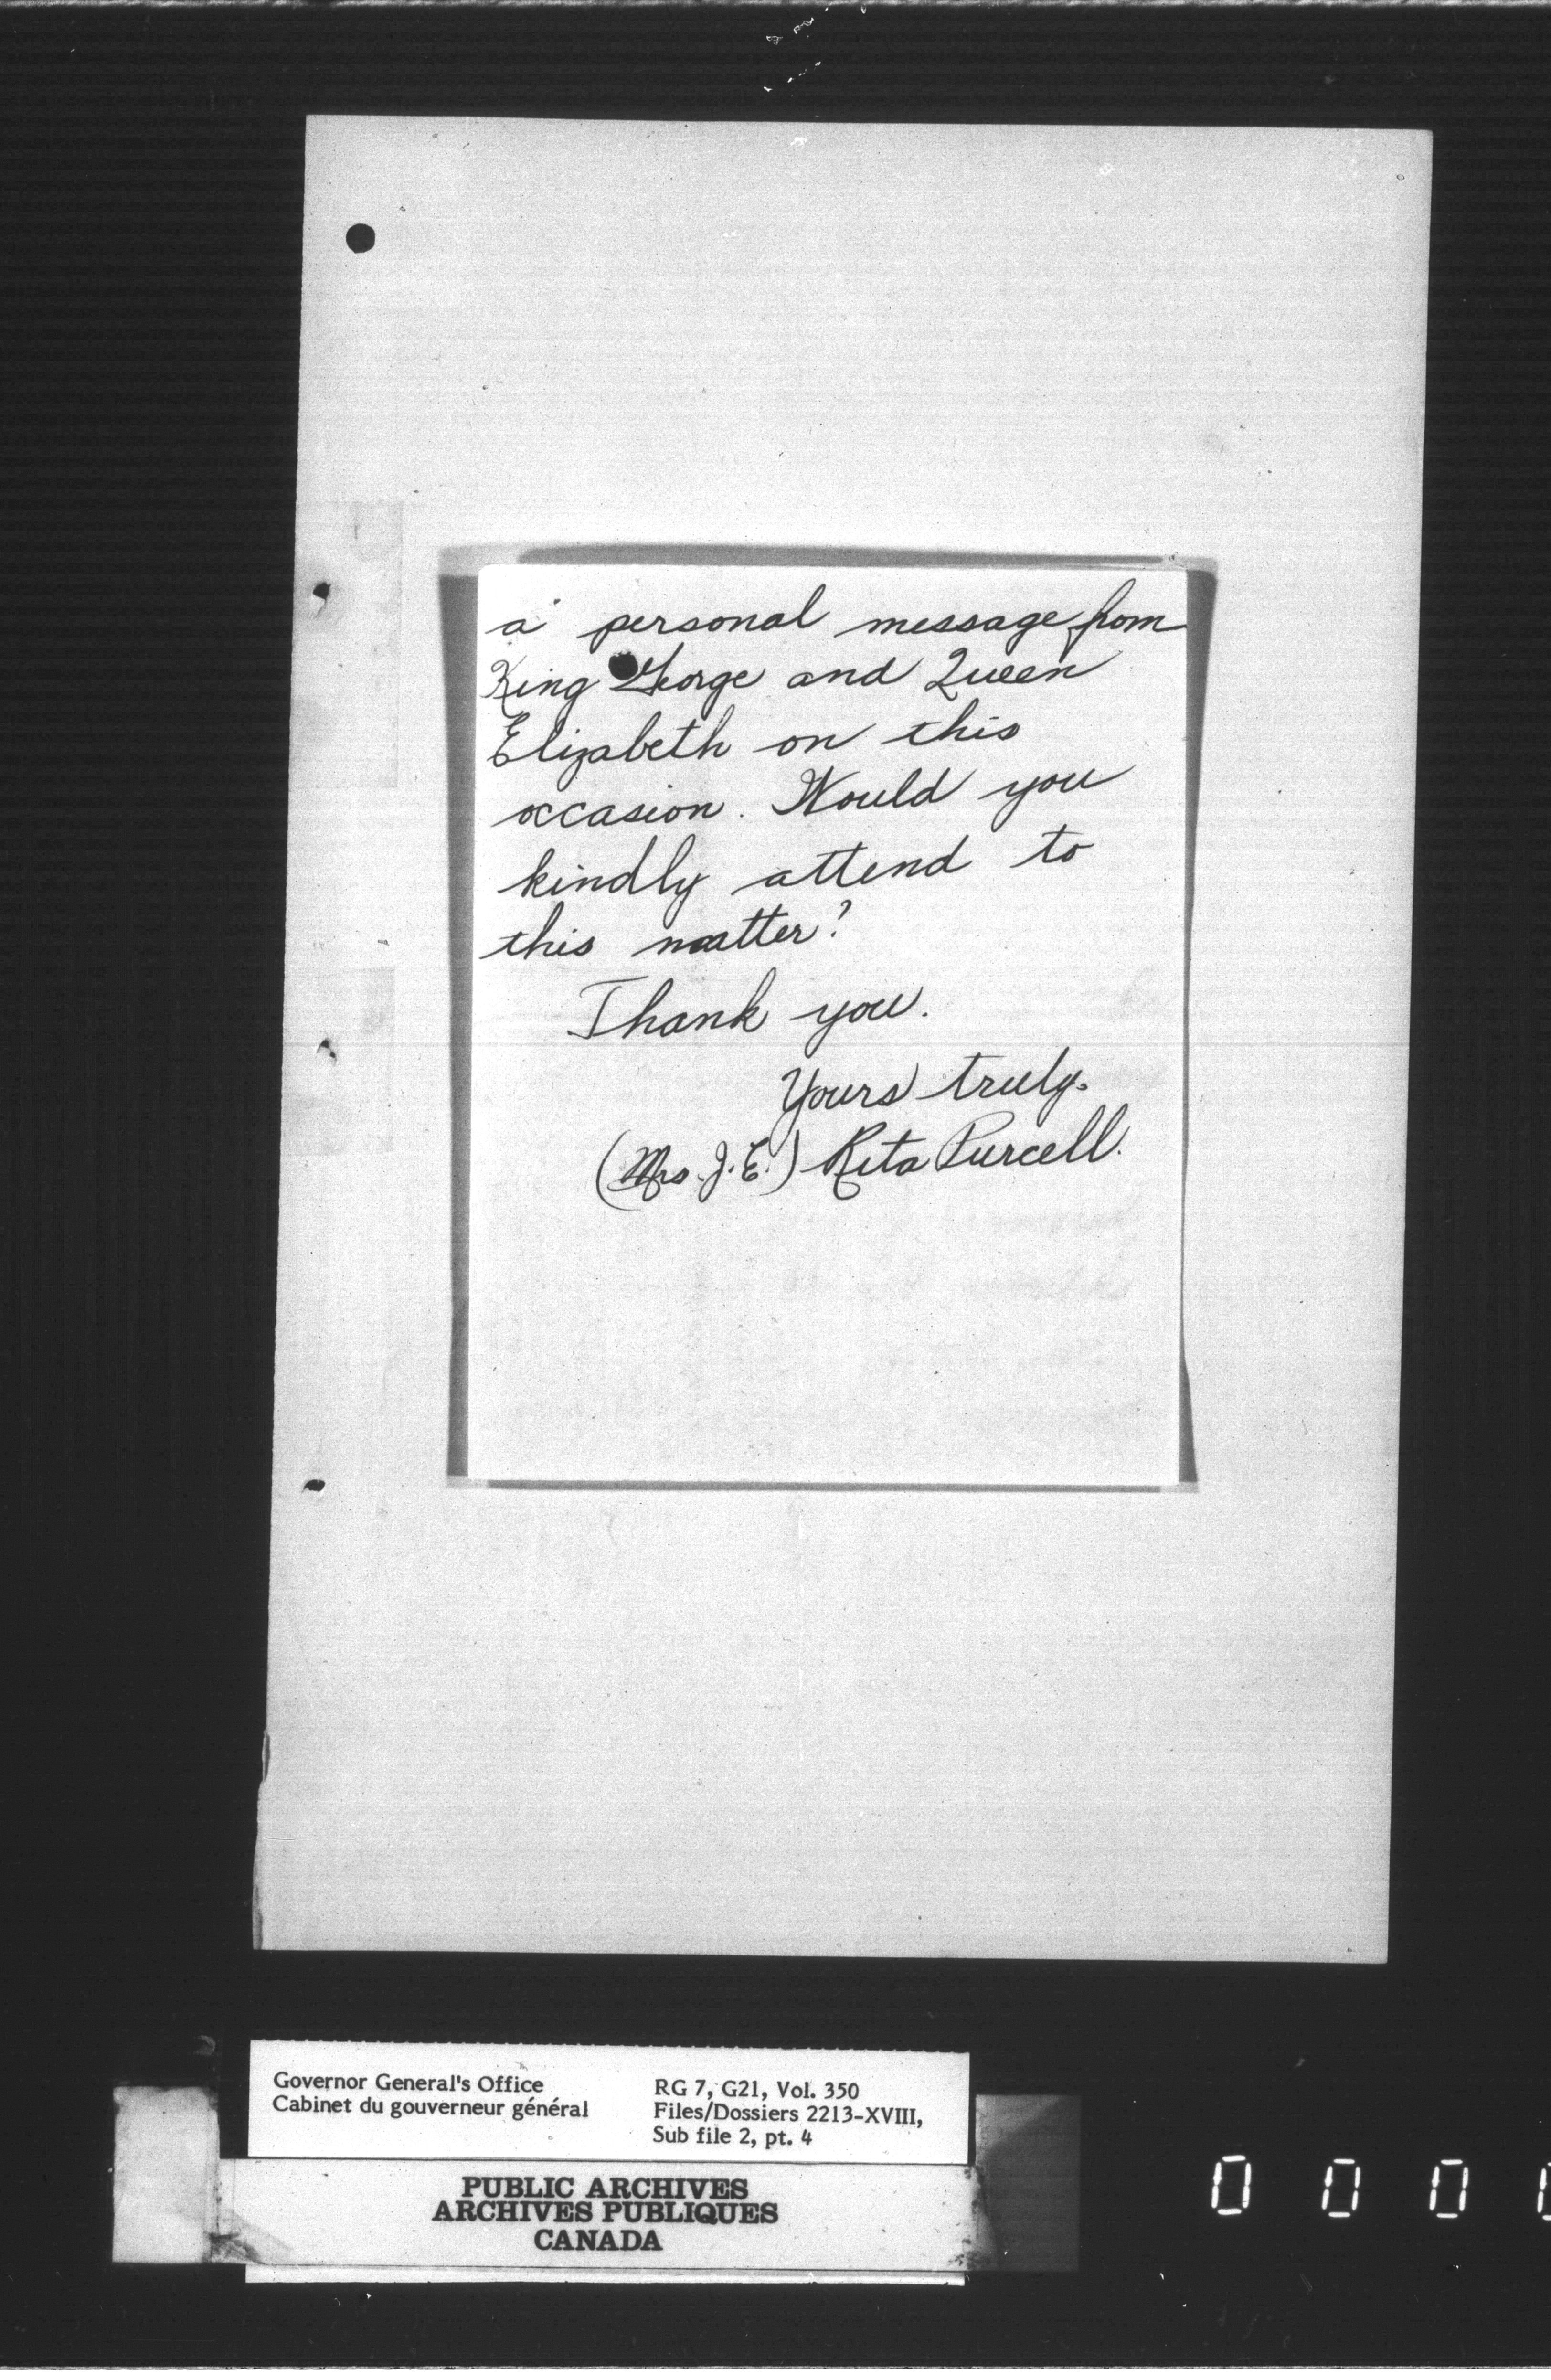 a personal message from
King George and Queen
Elizabeth on this
occasion. Would you
kindly attend to
this matter?
Thank you.
Yours truly.
(Mrs. J. E.) Rita Purcell.
Governor General's Office
Cabinet du gouverneur général
RG 7, G21, Vol. 350
Files/Dossiers 2213-XVIII,
Sub file 2, pt. 4
PUBLIC ARCHIVES
ARCHIVES PUBLIQUES
CANADA
0 0 0